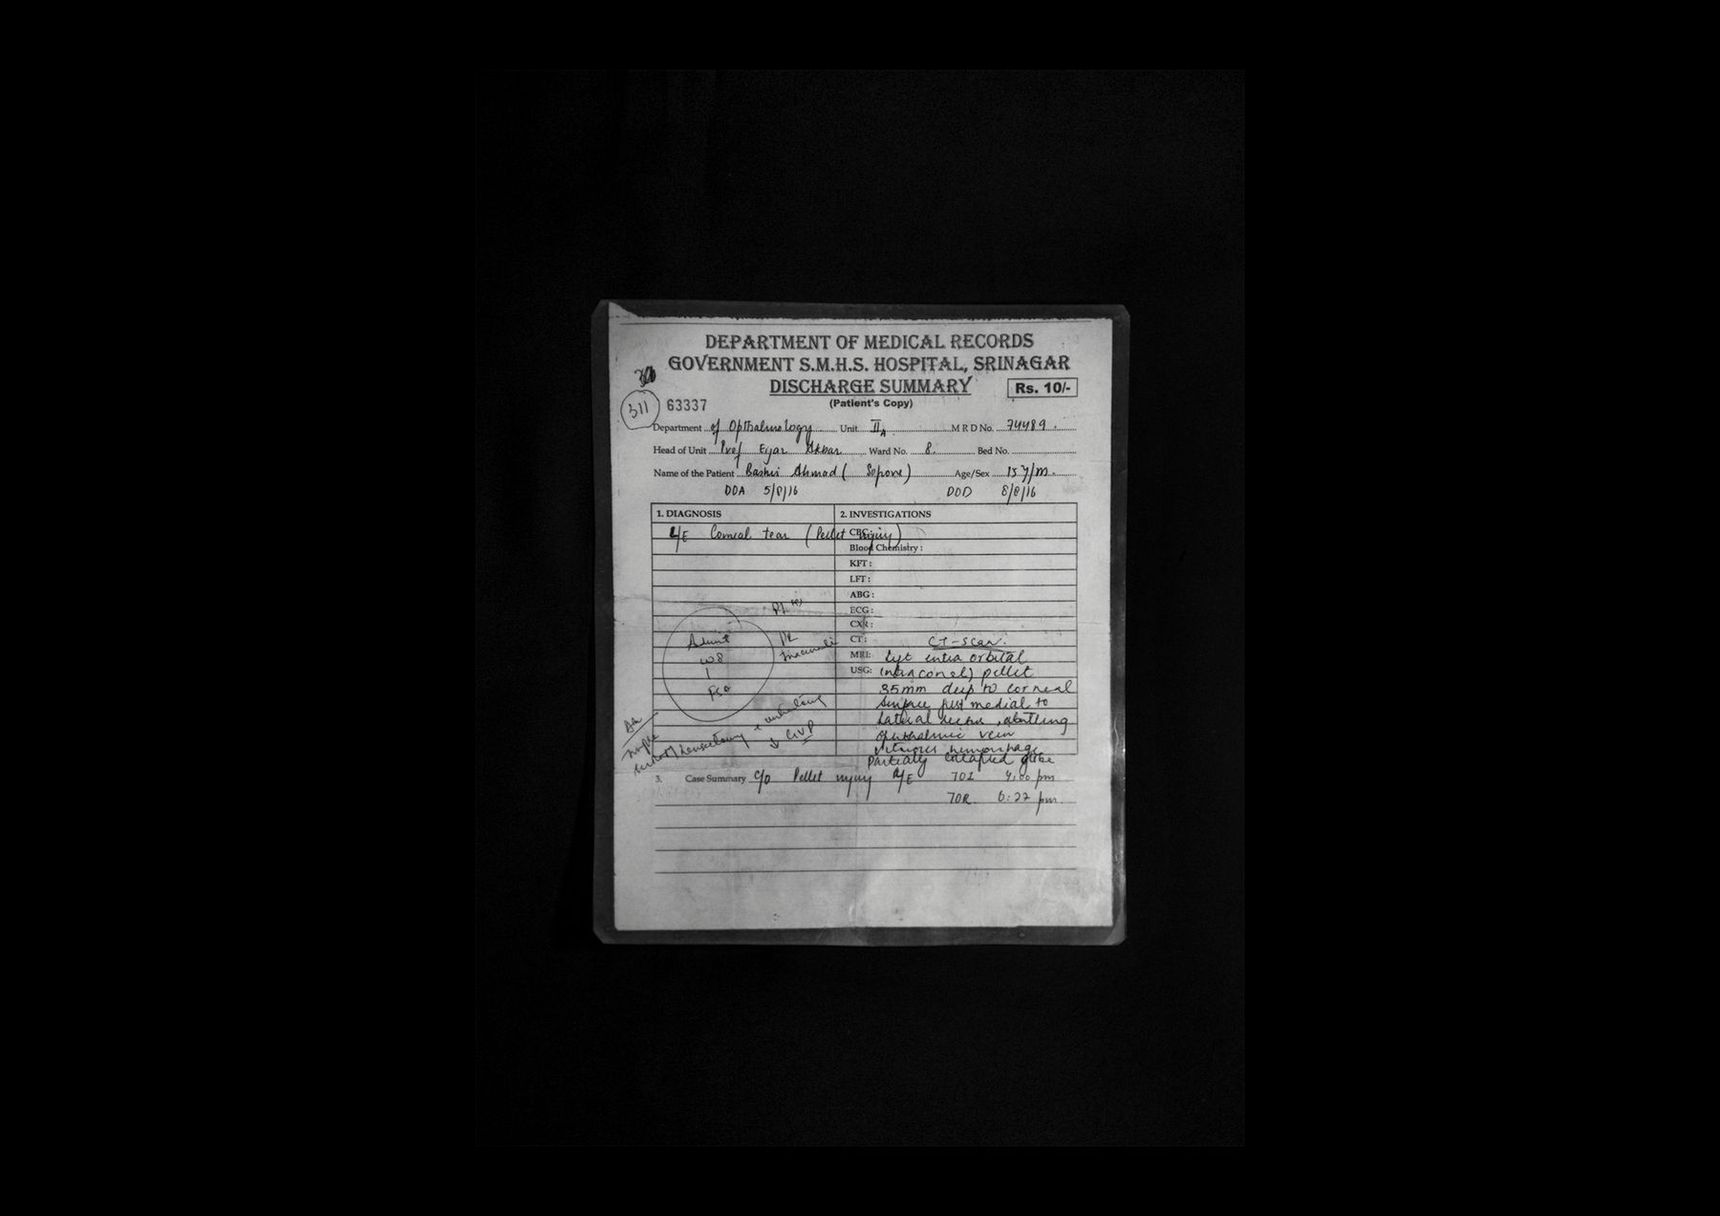 DEPARTMENT OF MEDICAL RECORDS
GOVERNMENT S.M.H.S. HOSPITAL, SRINAGAR
DISCHARGE SUMMARY Rs. 10/-
(Patient's Copy)
311 63337
Department of Opthalmology Unit II A M R D No. 74489
Head of Unit Prof Ward No. 8. Bed No.
Name of the Patient Bashir Ahmad (Sopore) Age/Sex 15 y/m.
DOA 5/8/16 DOD 8/8/16
1. DIAGNOSIS 2. INVESTIGATIONS
L/E Corneal tear (Pellet injury) CBC:
Blood Chemistry :
KFT :
LFT :
ABG :
ECG :
CXR :
Admit CT: CT-Scan.
W8 MRI: Left intra orbital
USG: (intraconal) pellet
35mm deep to corneal
surface just medial to
Lateral rectus, abutting
ophthalmic vein
vitreous hemorrhage
Partially collapsed globe
3. Case Summary c/o Pellet injury TOI 4:00 pm
TOR 6:22 pm.